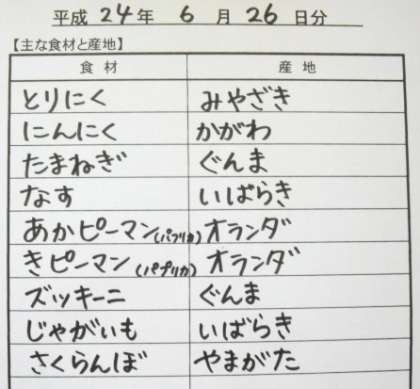 平成 24 年 6 月 26 日分
【主な食材と産地】
食材 産地
とりにく みやざき
にんにく かがわ
たまねぎ ぐんま
なす いばらき
あかピーマン(パプリカ) オランダ
きピーマン(パプリカ) オランダ
ズッキーニ ぐんま
じゃがいも いばらき
さくらんぼ やまがた